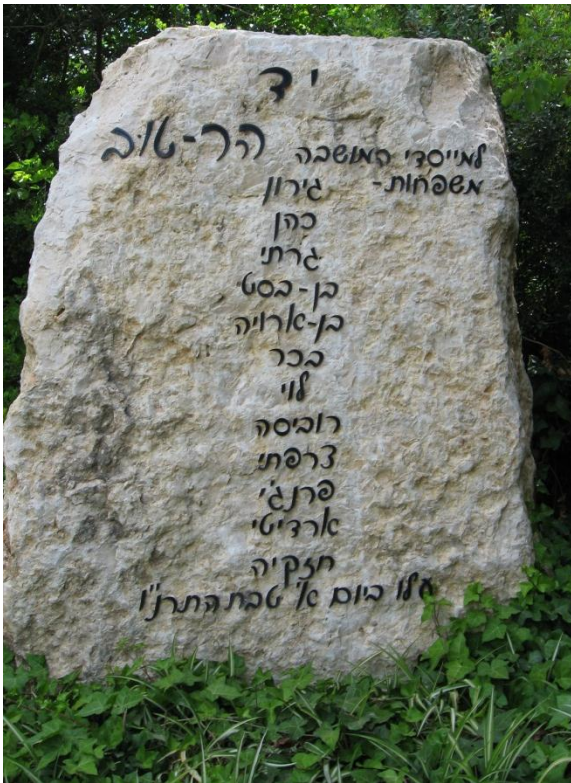 יד
למייסדי המושבה הר-טוב
משפחות-
גירון
כהן
גרתי
בן-בסט
בן-ארויה
בכר
לוי
רוביסה
צרפתי
פרנג'י
ארדיטי
חזקיה
עלו ביום א' טבת התרנ"ו